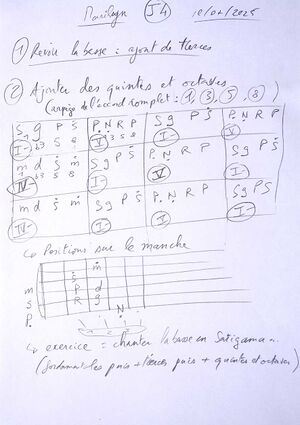 Marilyn J4 10/02/2025
① Revoir la basse : ajout de tierces
② Ajouter des quintes et octaves
(arpège de l'accord complet : 1, 3, 5, 8)
S g P Ṡ P. N R P S g P Ṡ P. N R P
I- V I- V
m d ṡ ṁ S g P Ṡ P. N R P S g P Ṡ
IV- I- V I-
m d ṡ ṁ S g P Ṡ P. N R P S g P Ṡ
IV- I- V I-
↳ Positions sur le manche
ṡ ṁ
m P d
S R g
P. N
↳ exercice = chanter la basse en Sarigama
(fondamentales puis + tierces puis + quintes et octaves)